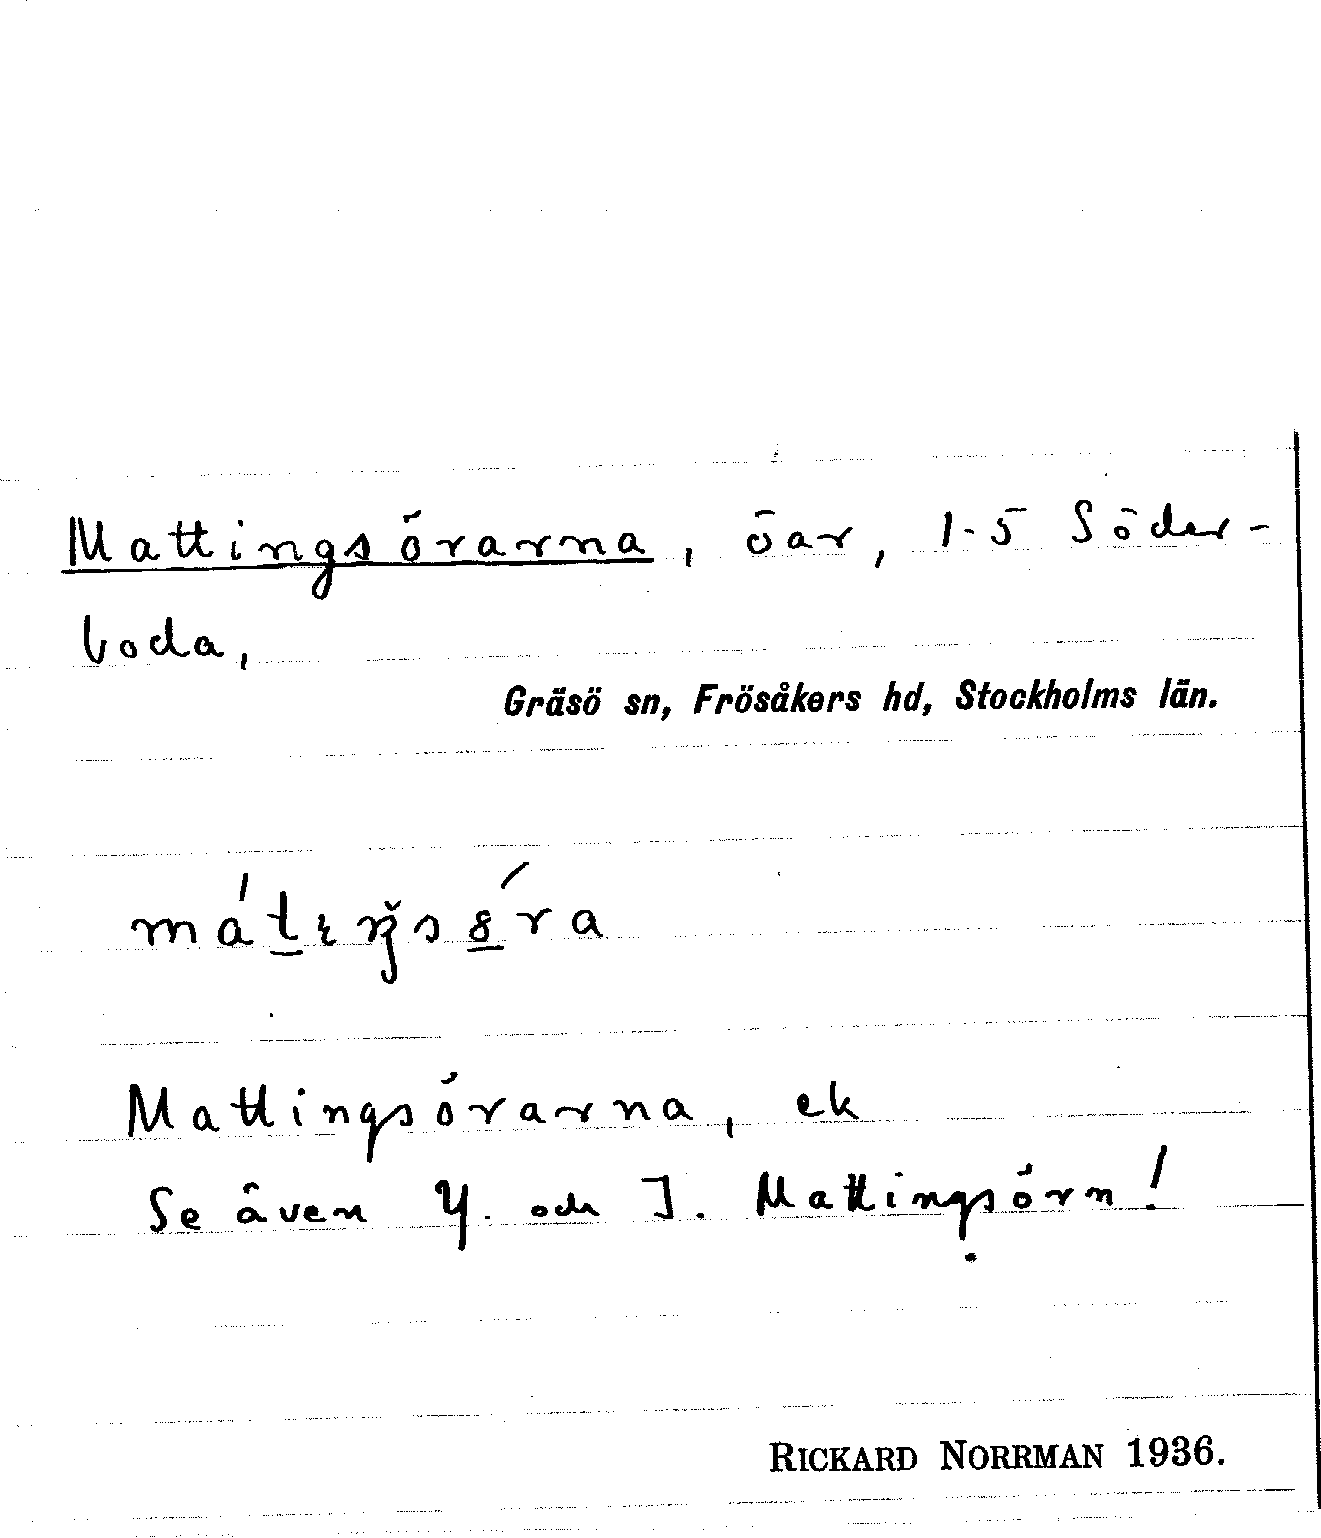 Mattingsörarna, öar, 1-5 Söder-
boda,
Gräsö sn, Frösåkers hd, Stockholms län.
Mattingsörarna, ek
Se även Y. och J. Mattingsörn!
RICKARD NORRMAN 1936.